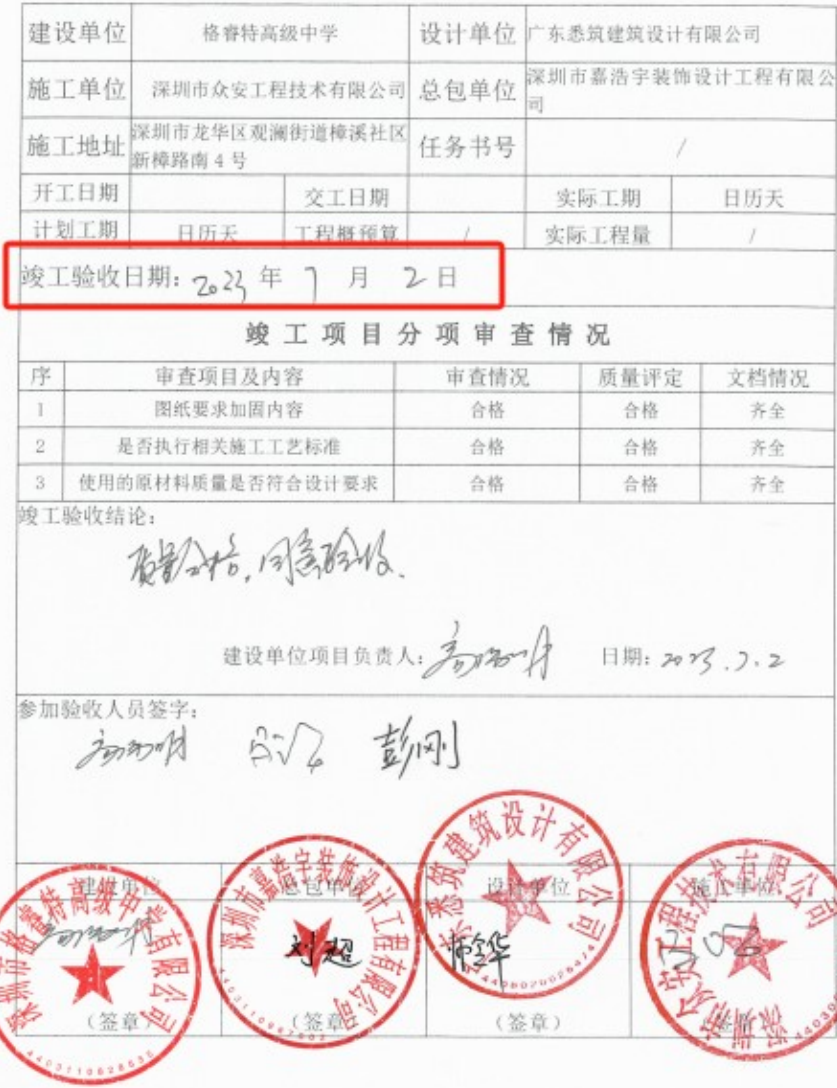 建设单位 格睿特高级中学 设计单位 广东悉筑建筑设计有限公司
施工单位 深圳市众安工程技术有限公司 总包单位 深圳市嘉浩宇装饰设计工程有限公
司
施工地址 深圳市龙华区观澜街道樟溪社区 任务书号 /
新樟路南4号
开工日期 交工日期 实际工期 日历天
计划工期 日历天 工程概预算 / 实际工程量 /
竣工验收日期：2023年7月2日
竣工项目分项审查情况
序 审查项目及内容 审查情况 质量评定 文档情况
1 图纸要求加固内容 合格 合格 齐全
2 是否执行相关施工工艺标准 合格 合格 齐全
3 使用的原材料质量是否符合设计要求 合格 合格 齐全
竣工验收结论：
质量合格，同意验收.
建设单位项目负责人： 日期：2023.7.2
参加验收人员签字：
彭刚
建设单位 总包单位 设计单位 施工单位
深圳市格睿特高级中学有限公司
深圳市嘉浩宇装饰设计工程有限公司
悉筑建筑设计有限公司
深圳市众安工程技术有限公司
刘超
（签章） （签章） （签章） （签章）